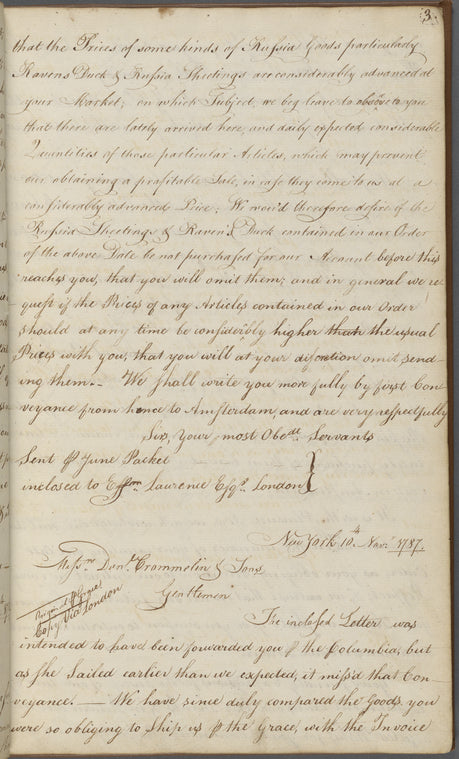 3.
that the Prices of some kinds of Russia Goods particularly
Ravens Duck & Russia Sheetings are considerably advanced at
your Market; on which Subject, we beg leave to observe to you
that there are lately arrived here, and daily expected considerable
Quantities of those particular Articles, which may prevent
our obtaining a profitable Sale, in case they come to us at a
considerably advanced Price; We wou'd therefore desire if the
Russia Sheetings & Raven's Duck contained in our Order
of the above Date be not purchased for our Account before this
reaches you, that you will omit them; and in general we re
quest if the Prices of any Articles contained in our Order
should at any time be considerably higher than the usual
Prices with you, that you will at your discretion omit send-
ing them.— We shall write you more fully by first Con
veyance from hence to Amsterdam, and are very respectfully
Sirs, Your most Obedt. Servants
Sent p June Packet
inclosed to Laurence Esqr. London
New York 10th. Novr. 1787.
Messrs. Danl. Crommolin & Sons.
Gentlemen
Original p Grace
Copy via London
The inclosed Letter was
intended to have been forwarded you p the Columbia, but
as she Sailed earlier than we expected, it miss'd that Con-
veyance.— We have since duly compared the Goods you
were so obliging to Ship us p the Grace, with the Invoice